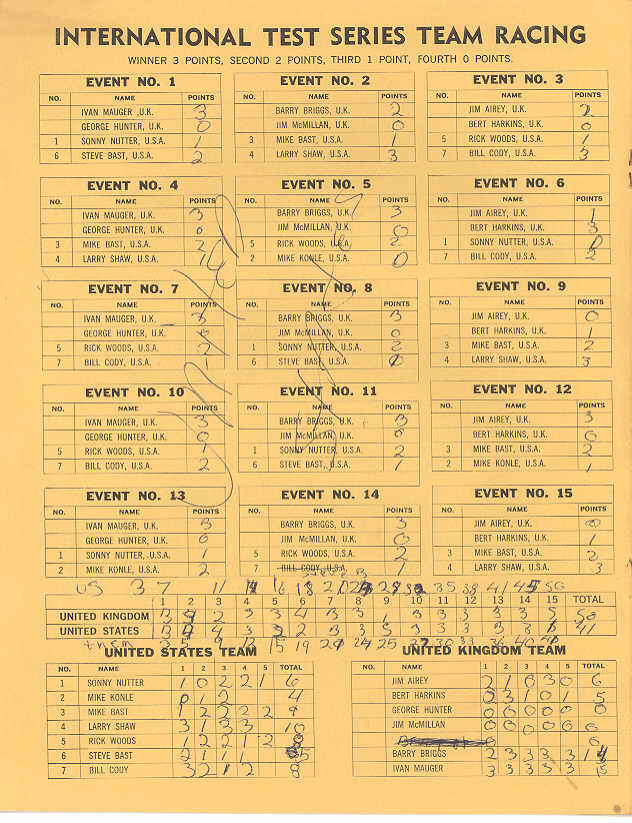 INTERNATIONAL TEST SERIES TEAM RACING
WINNER 3 POINTS, SECOND 2 POINTS, THIRD 1 POINT, FOURTH 0 POINTS.
EVENT NO. 1
NO. NAME POINTS
IVAN MAUGER, U.K. 3
GEORGE HUNTER, U.K. 0
1 SONNY NUTTER, U.S.A. 1
6 STEVE BAST, U.S.A. 2
EVENT NO. 2
NO. NAME POINTS
BARRY BRIGGS, U.K. 2
JIM McMILLAN, U.K. 0
3 MIKE BAST, U.S.A. 1
4 LARRY SHAW, U.S.A. 3
EVENT NO. 3
NO. NAME POINTS
JIM AIREY, U.K. 2
BERT HARKINS, U.K. 0
5 RICK WOODS, U.S.A. 1
7 BILL CODY, U.S.A. 3
EVENT NO. 4
NO. NAME POINTS
IVAN MAUGER, U.K. 3
GEORGE HUNTER, U.K. 0
3 MIKE BAST, U.S.A. 2
4 LARRY SHAW, U.S.A. 1
EVENT NO. 5
NO. NAME POINTS
BARRY BRIGGS, U.K. 3
JIM McMILLAN, U.K. 0
5 RICK WOODS, U.S.A. 2
2 MIKE KONLE, U.S.A. 0
EVENT NO. 6
NO. NAME POINTS
JIM AIREY, U.K. 1
BERT HARKINS, U.K. 3
1 SONNY NUTTER, U.S.A. 0
7 BILL CODY, U.S.A. 2
EVENT NO. 7
NO. NAME POINTS
IVAN MAUGER, U.K. 3
GEORGE HUNTER, U.K. 0
5 RICK WOODS, U.S.A. 2
7 BILL CODY, U.S.A. 1
EVENT NO. 8
NO. NAME POINTS
BARRY BRIGGS, U.K. 3
JIM McMILLAN, U.K. 0
1 SONNY NUTTER, U.S.A. 2
6 STEVE BAST, U.S.A.
EVENT NO. 9
NO. NAME POINTS
JIM AIREY, U.K. 0
BERT HARKINS, U.K. 1
3 MIKE BAST, U.S.A. 2
4 LARRY SHAW, U.S.A. 3
EVENT NO. 10
NO. NAME POINTS
IVAN MAUGER, U.K. 3
GEORGE HUNTER, U.K. 0
5 RICK WOODS, U.S.A. 1
7 BILL CODY, U.S.A. 2
EVENT NO. 11
NO. NAME POINTS
BARRY BRIGGS, U.K. 3
JIM McMILLAN, U.K. 0
1 SONNY NUTTER, U.S.A. 2
6 STEVE BAST, U.S.A. 1
EVENT NO. 12
NO. NAME POINTS
JIM AIREY, U.K. 3
BERT HARKINS, U.K. 0
3 MIKE BAST, U.S.A. 2
2 MIKE KONLE, U.S.A. 1
EVENT NO. 13
NO. NAME POINTS
IVAN MAUGER, U.K. 3
GEORGE HUNTER, U.K. 0
1 SONNY NUTTER, U.S.A. 1
2 MIKE KONLE, U.S.A. 2
EVENT NO. 14
NO. NAME POINTS
BARRY BRIGGS, U.K. 3
JIM McMILLAN, U.K. 0
5 RICK WOODS, U.S.A. 2
7 BILL CODY, U.S.A. 1
EVENT NO. 15
NO. NAME POINTS
JIM AIREY, U.K. 0
BERT HARKINS, U.K. 1
3 MIKE BAST, U.S.A. 2
4 LARRY SHAW, U.S.A. 3
US 3 7 11 16 18 35 38 41 45 50
1 2 3 4 5 6 7 8 9 10 11 12 13 14 15 TOTAL
UNITED KINGDOM 50
UNITED STATES 41
them
UNITED STATES TEAM
NO. NAME 1 2 3 4 5 TOTAL
1 SONNY NUTTER 1 0 2 2 1 6
2 MIKE KONLE 0 1 2 4
3 MIKE BAST 1 2 2 2 2 9
4 LARRY SHAW 3 1 3 3 10
5 RICK WOODS 1 2 2 1 2 8
6 STEVE BAST 2 1 1 1
7 BILL CODY 3 2 1 2 8
UNITED KINGDOM TEAM
NO. NAME 1 2 3 4 5 TOTAL
JIM AIREY 2 1 0 3 0 6
BERT HARKINS 0 3 1 0 1 5
GEORGE HUNTER 0 0 0 0 0 0
JIM McMILLAN 0 0 0 0 0 0
BARRY BRIGGS 2 3 3 3 3 14
IVAN MAUGER 3 3 3 3 3 15